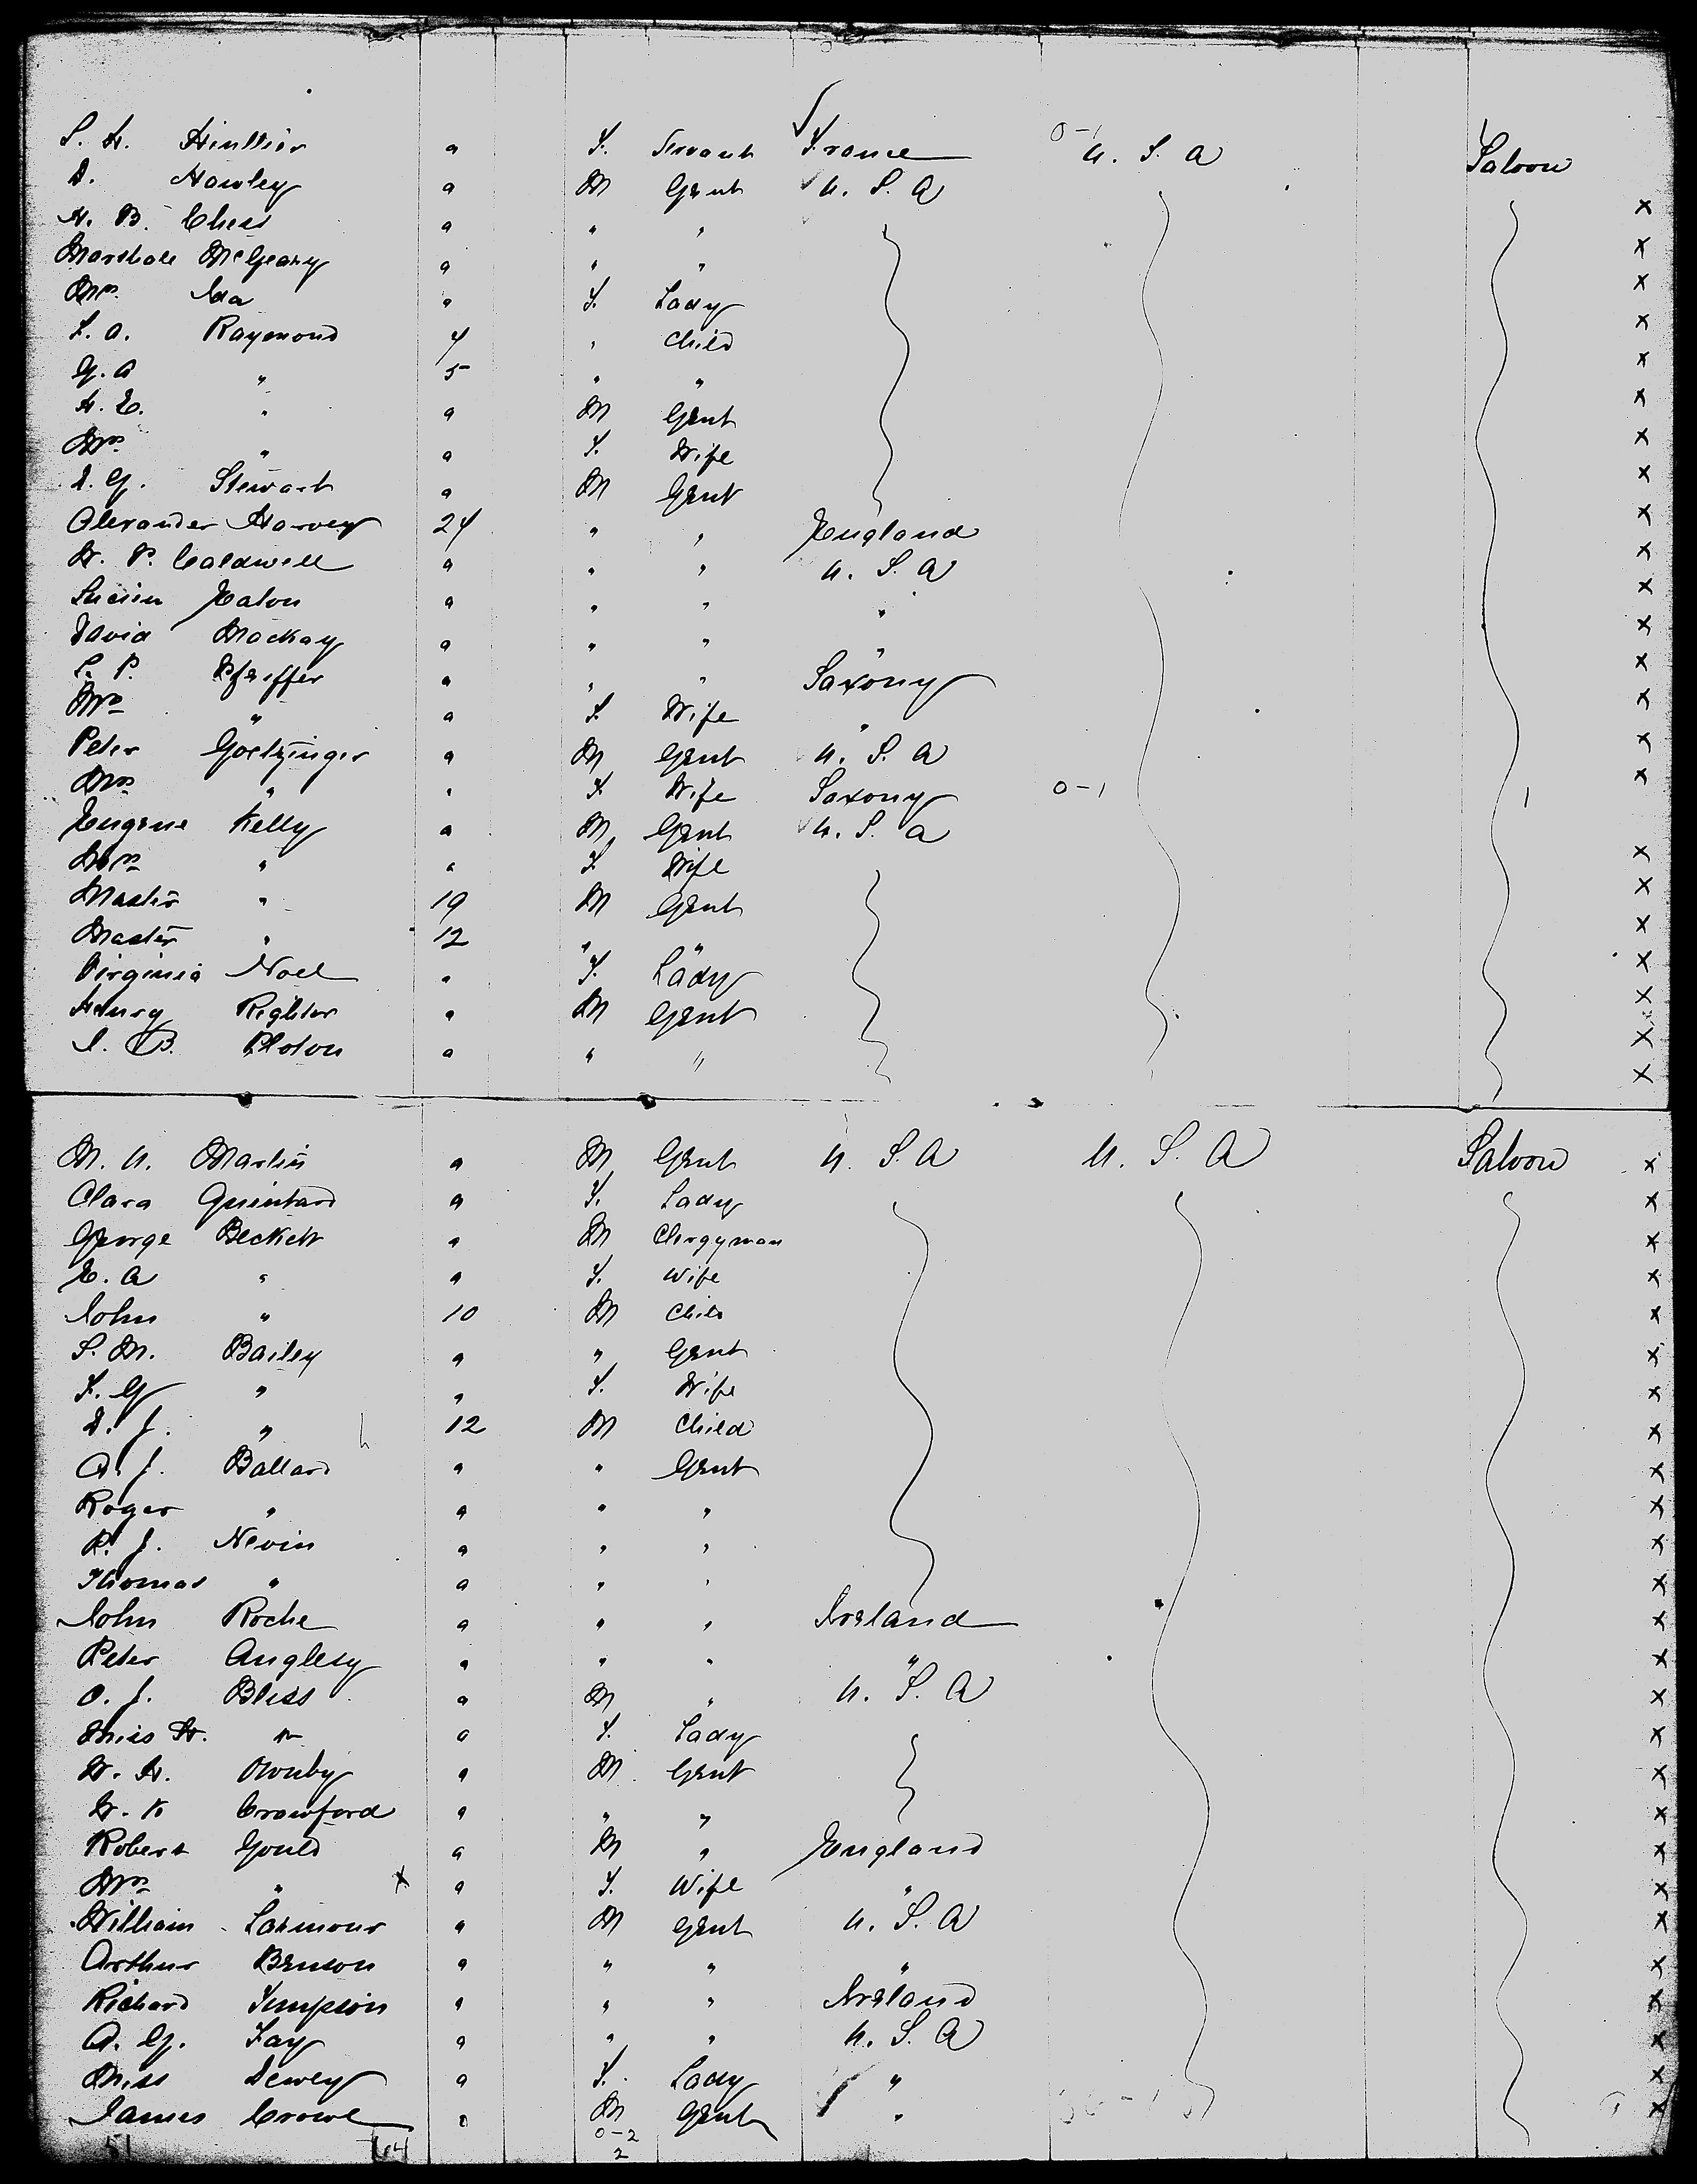 S. H. a F. Servant France 0-1 U. S. A Saloon
D. Hawley a M Gent U. S. A
H. B. Chess a " " x
Marshall McGeary a " " x
Mrs Ida a F. Lady x
F. A. Raymond 4 " Child x
G. A " 5 " " x
H. E. " a M Gent x
Mrs " a F. Wife x
D. G. Stewart a M Gent x
Alexander Harvey 24 " " England x
W. P. Caldwell a " " U. S. A x
Lucien Eaton a " " " x
David Mackay a " " " x
C. P. Pfeiffer a " " Saxony x
Mrs " a F. Wife " x
Peter Goetzinger a M Gent U. S. A x
Mrs " " F. Wife Saxony 0-1 1
Eugene Kelly a M Gent U. S. A
Mrs " a F. Wife x
Master " 19 M Gent x
Master " 12 " " x
Virginia Noel a F. Lady x
Henry Righter a M Gent x
J. B. a " " x
M. N. Martin a M Gent U. S. A U. S. A Saloon x
Clara Quintard a F. Lady x
George Beckett a M Clergyman x
E. A " a F. Wife x
John " 10 M Child x
S. M. Bailey a " Gent x
F. G " a F. Wife x
D. J. " 12 M Child x
A. J. Ballard a " Gent x
Roger " a " " x
R. J. Nevin a " " x
Thomas " a " " x
John Roche a " " Ireland x
Peter Anglesy a " " " x
O. J. Bliss a M " U. S. A x
Miss H. " a F. Lady x
W. H. Ownby a M Gent x
W. K Crawford a " " x
Robert Gould a M " England x
Mrs " x a F. Wife " x
William Larmour a M Gent U. S. A x
Arthur Benson a " " " x
Richard Simpson a " " Ireland x
A. G. Fay a " " U. S. A x
Miss Dewey a F. Lady " x
James Crowe a M Gent " x
51 0-2
2